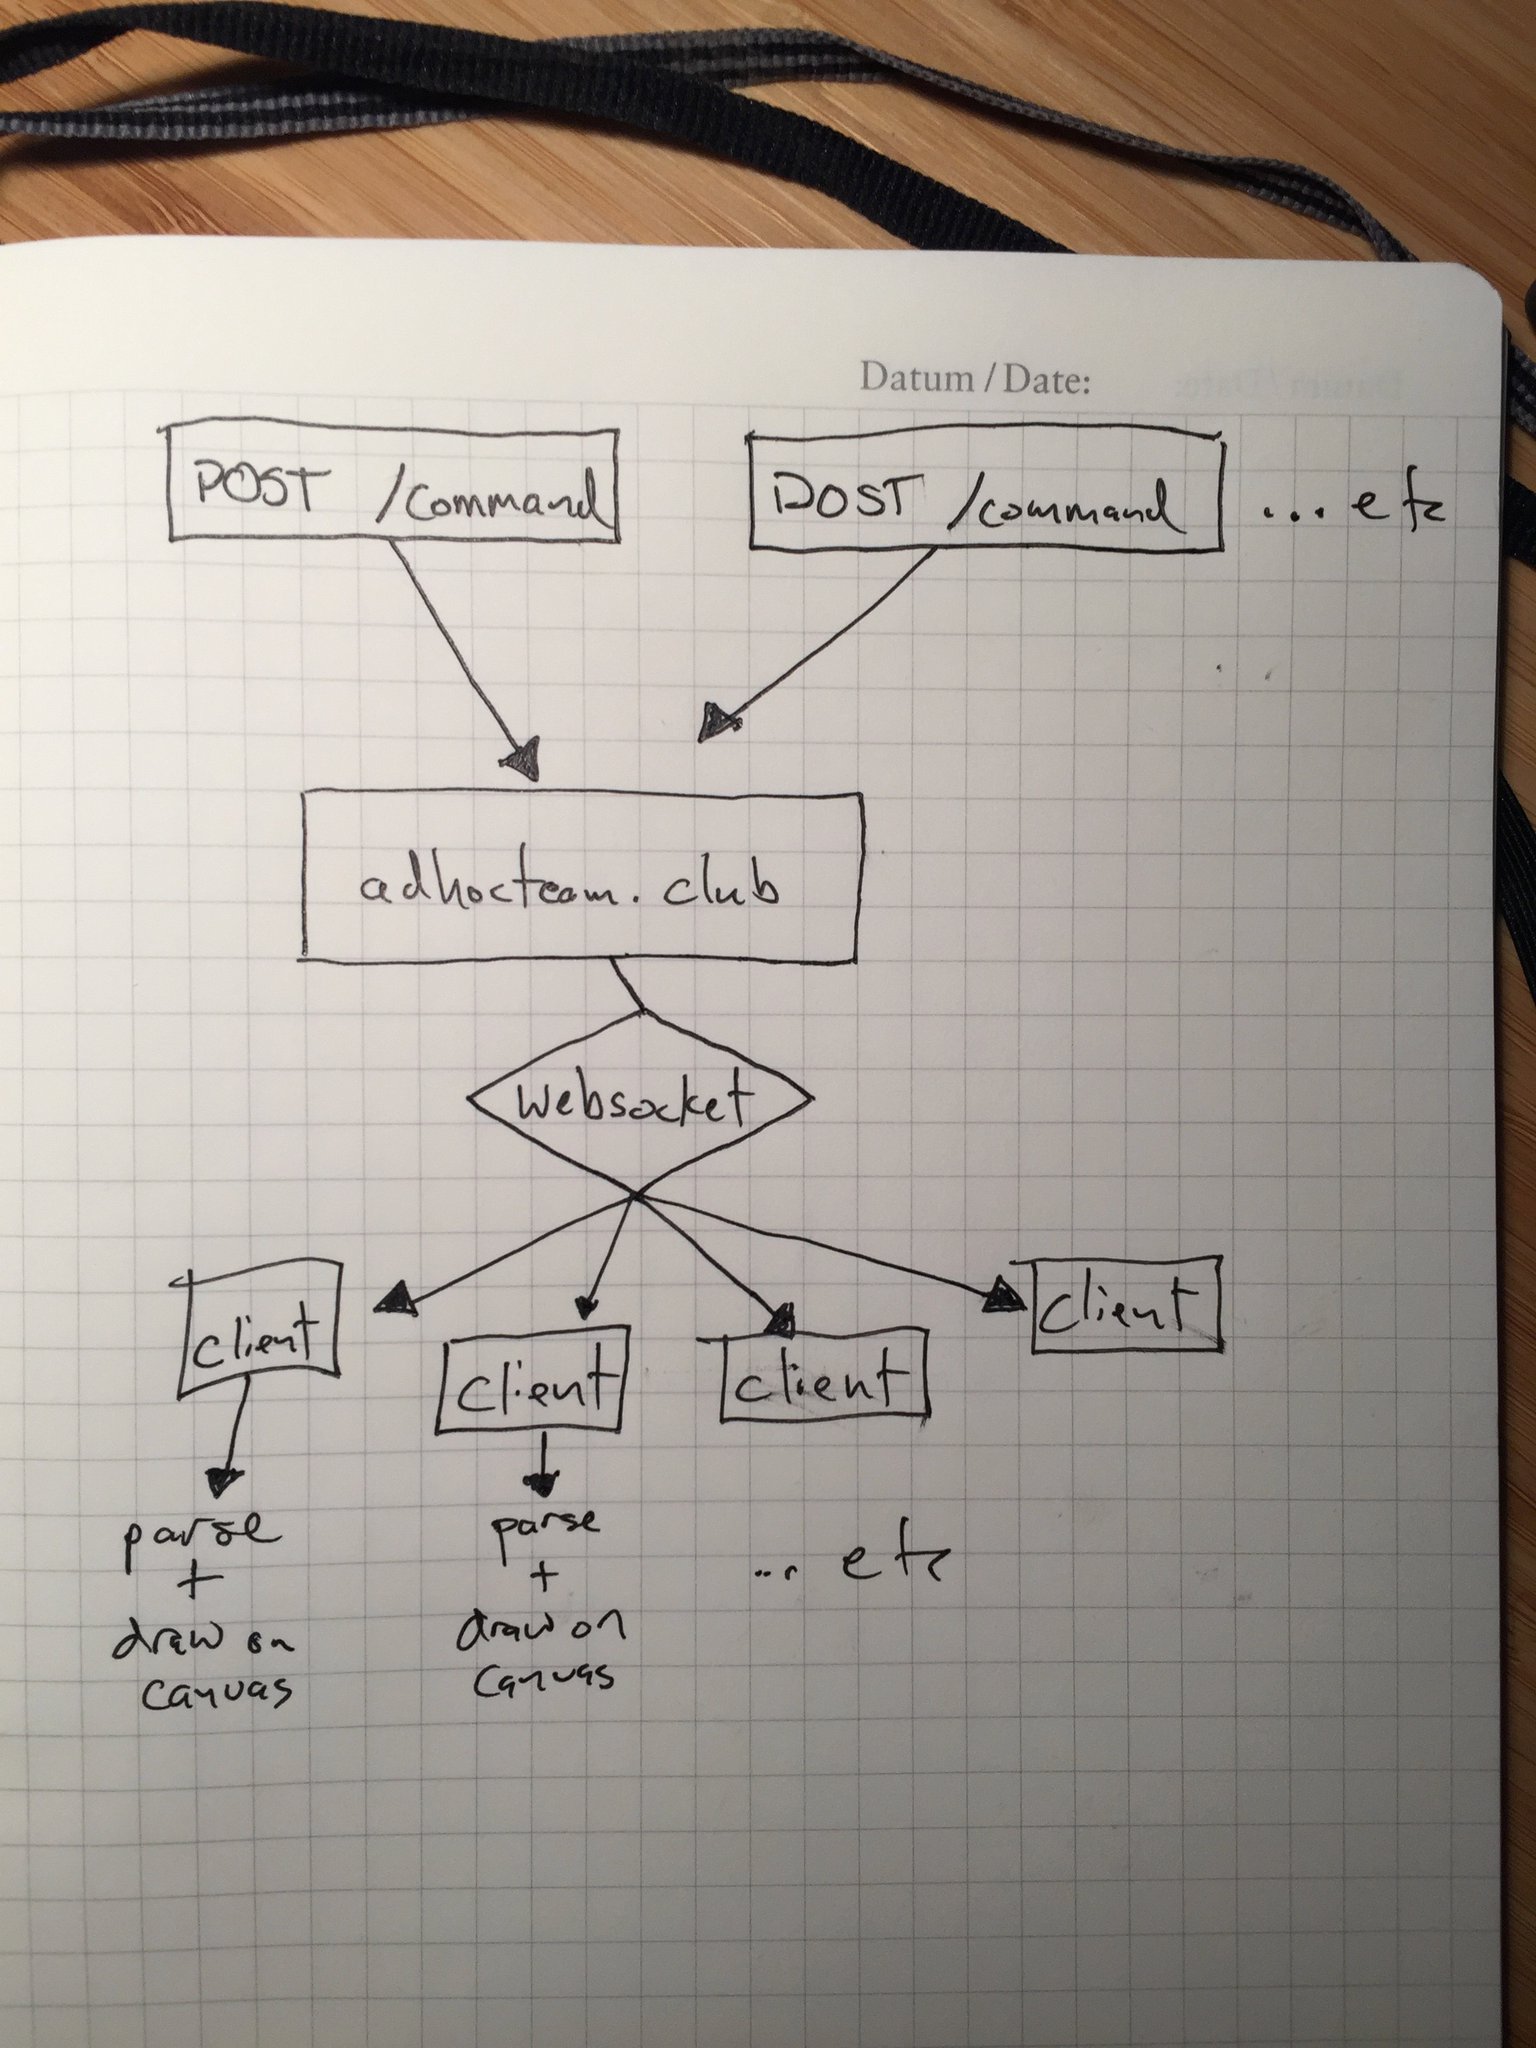 Datum / Date:
POST /command
POST /command
... etc
adhocteam.club
Websocket
client
client
client
client
parse
+
draw on
canvas
parse
+
draw on
canvas
... etc